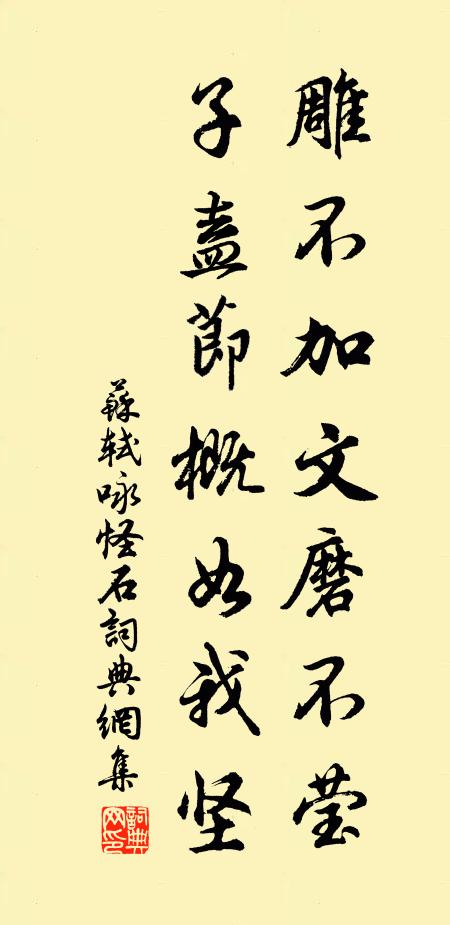 雕不加文磨不莹
子盍節概如我坚
蘇軾咏怪石詞典網集
詞典网印